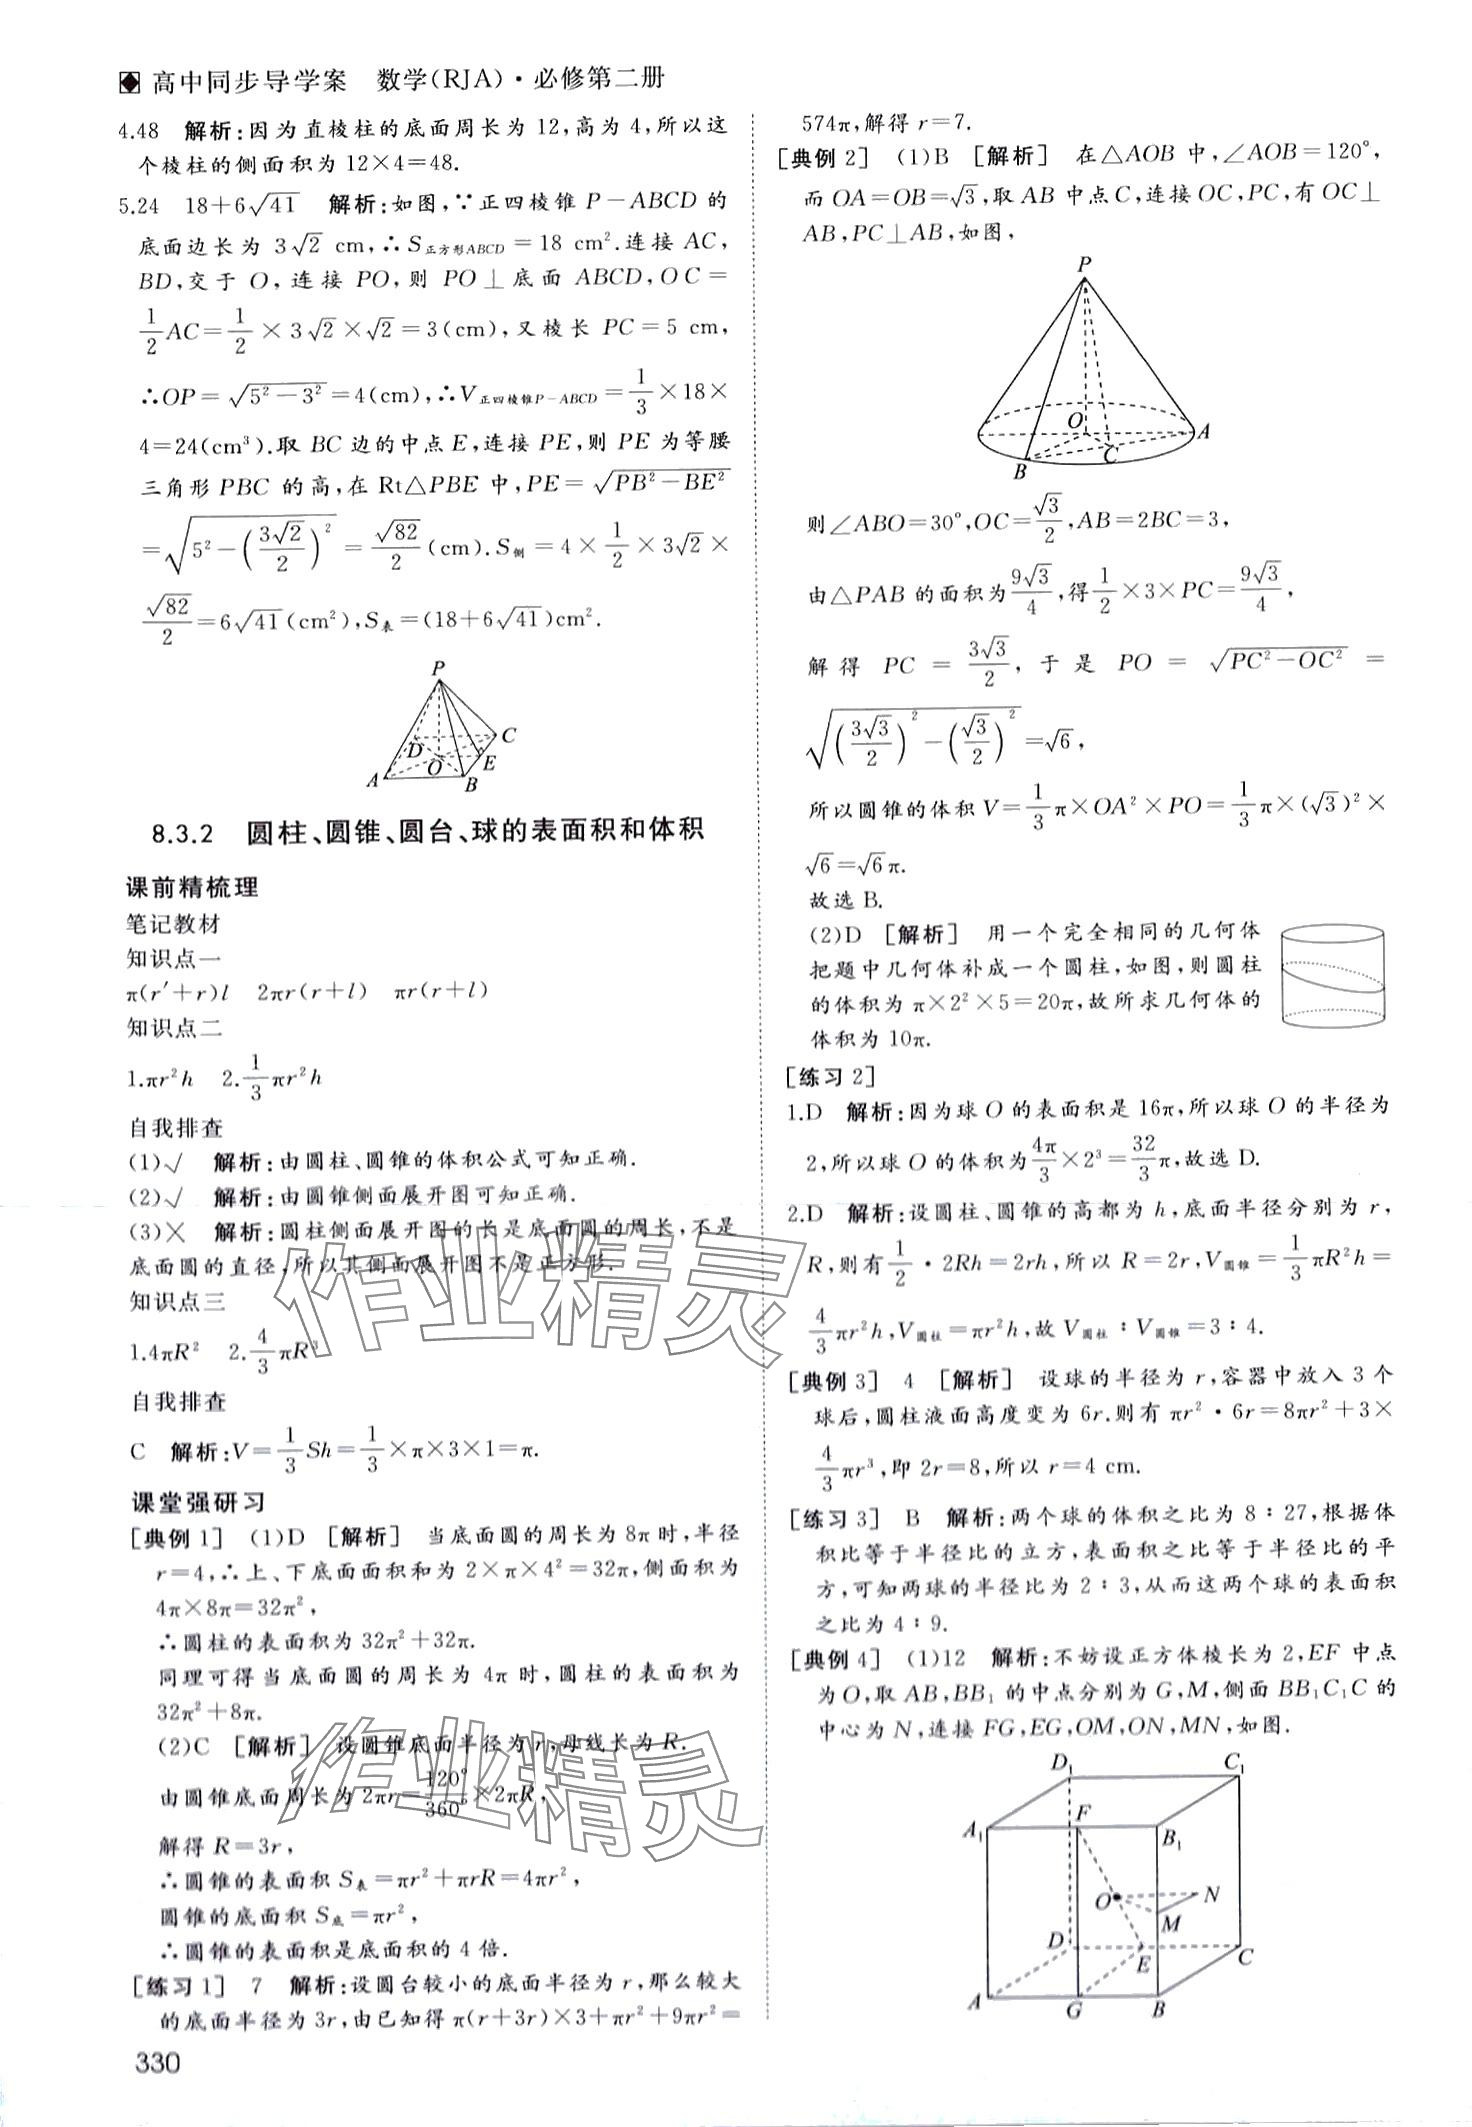 高中同步导学案 数学(RJA)·必修第二册
4.48 解析:因为直棱柱的底面周长为12,高为4,所以这
个棱柱的侧面积为12×4=48.
5.24 18+6√41 解析:如图,∵正四棱锥P-ABCD的
底面边长为3√2 cm,∴S正方形ABCD=18 cm².连接AC,
BD,交于O,连接PO,则PO⊥底面ABCD,OC=
1/2 AC=1/2×3√2×√2=3(cm),又棱长PC=5 cm,
∴OP=√(5²-3²)=4(cm),∴V正四棱锥P-ABCD=1/3×18×
4=24(cm³).取BC边的中点E,连接PE,则PE为等腰
三角形PBC的高,在Rt△PBE中,PE=√(PB²-BE²)
=√(5²-(3√2/2)²)=√82/2(cm).S侧=4×1/2×3√2×
√82/2=6√41(cm²),S表=(18+6√41)cm².
P
D
C
O
E
A
B
8.3.2 圆柱、圆锥、圆台、球的表面积和体积
课前精梳理
笔记教材
知识点一
π(r′+r)l 2πr(r+l) πr(r+l)
知识点二
1.πr²h 2.1/3πr²h
自我排查
(1)√ 解析:由圆柱、圆锥的体积公式可知正确.
(2)√ 解析:由圆锥侧面展开图可知正确.
(3)× 解析:圆柱侧面展开图的长是底面圆的周长,不是
底面圆的直径,所以其侧面展开图不是正方形.
知识点三
1.4πR² 2.4/3πR³
自我排查
C 解析:V=1/3Sh=1/3×π×3×1=π.
课堂强研习
[典例1] (1)D [解析] 当底面圆的周长为8π时,半径
r=4,∴上、下底面面积和为2×π×4²=32π,侧面积为
4π×8π=32π²,
∴圆柱的表面积为32π²+32π.
同理可得当底面圆的周长为4π时,圆柱的表面积为
32π²+8π.
(2)C [解析] 设圆锥底面半径为r,母线长为R.
由圆锥底面周长为2πr=120°/360°×2πR,
解得R=3r,
∴圆锥的表面积S表=πr²+πrR=4πr²,
圆锥的底面积S底=πr²,
∴圆锥的表面积是底面积的4倍.
[练习1] 7 解析:设圆台较小的底面半径为r,那么较大
的底面半径为3r,由已知得π(r+3r)×3+πr²+9πr²=
330
574π,解得r=7.
[典例2] (1)B [解析] 在△AOB中,∠AOB=120°,
而OA=OB=√3,取AB中点C,连接OC,PC,有OC⊥
AB,PC⊥AB,如图,
P
O
A
C
B
则∠ABO=30°,OC=√3/2,AB=2BC=3,
由△PAB的面积为9√3/4,得1/2×3×PC=9√3/4,
解得PC=3√3/2,于是PO=√(PC²-OC²)=
√((3√3/2)²-(√3/2)²)=√6,
所以圆锥的体积V=1/3π×OA²×PO=1/3π×(√3)²×
√6=√6π.
故选B.
(2)D [解析] 用一个完全相同的几何体
把题中几何体补成一个圆柱,如图,则圆柱
的体积为π×2²×5=20π,故所求几何体的
体积为10π.
[练习2]
1.D 解析:因为球O的表面积是16π,所以球O的半径为
2,所以球O的体积为4π/3×2³=32/3π,故选D.
2.D 解析:设圆柱、圆锥的高都为h,底面半径分别为r,
R,则有1/2·2Rh=2rh,所以R=2r,V圆锥=1/3πR²h=
4/3πr²h,V圆柱=πr²h,故V圆柱∶V圆锥=3∶4.
[典例3] 4 [解析] 设球的半径为r,容器中放入3个
球后,圆柱液面高度变为6r.则有πr²·6r=8πr²+3×
4/3πr³,即2r=8,所以r=4 cm.
[练习3] B 解析:两个球的体积之比为8∶27,根据体
积比等于半径比的立方,表面积之比等于半径比的平
方,可知两球的半径比为2∶3,从而这两个球的表面积
之比为4∶9.
[典例4] (1)12 解析:不妨设正方体棱长为2,EF中点
为O,取AB,BB₁的中点分别为G,M,侧面BB₁C₁C的
中心为N,连接FG,EG,OM,ON,MN,如图.
D₁
C₁
A₁
F
B₁
O
N
M
D
E
C
A
G
B
作业精灵
作业精灵